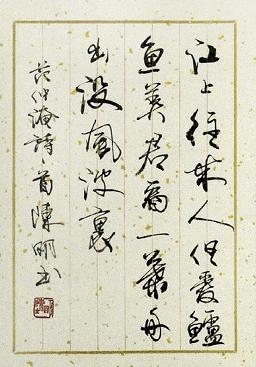 江上往來人但愛鱸
魚美君看一葉舟
出没風波裏
范仲淹詩一首陳明书